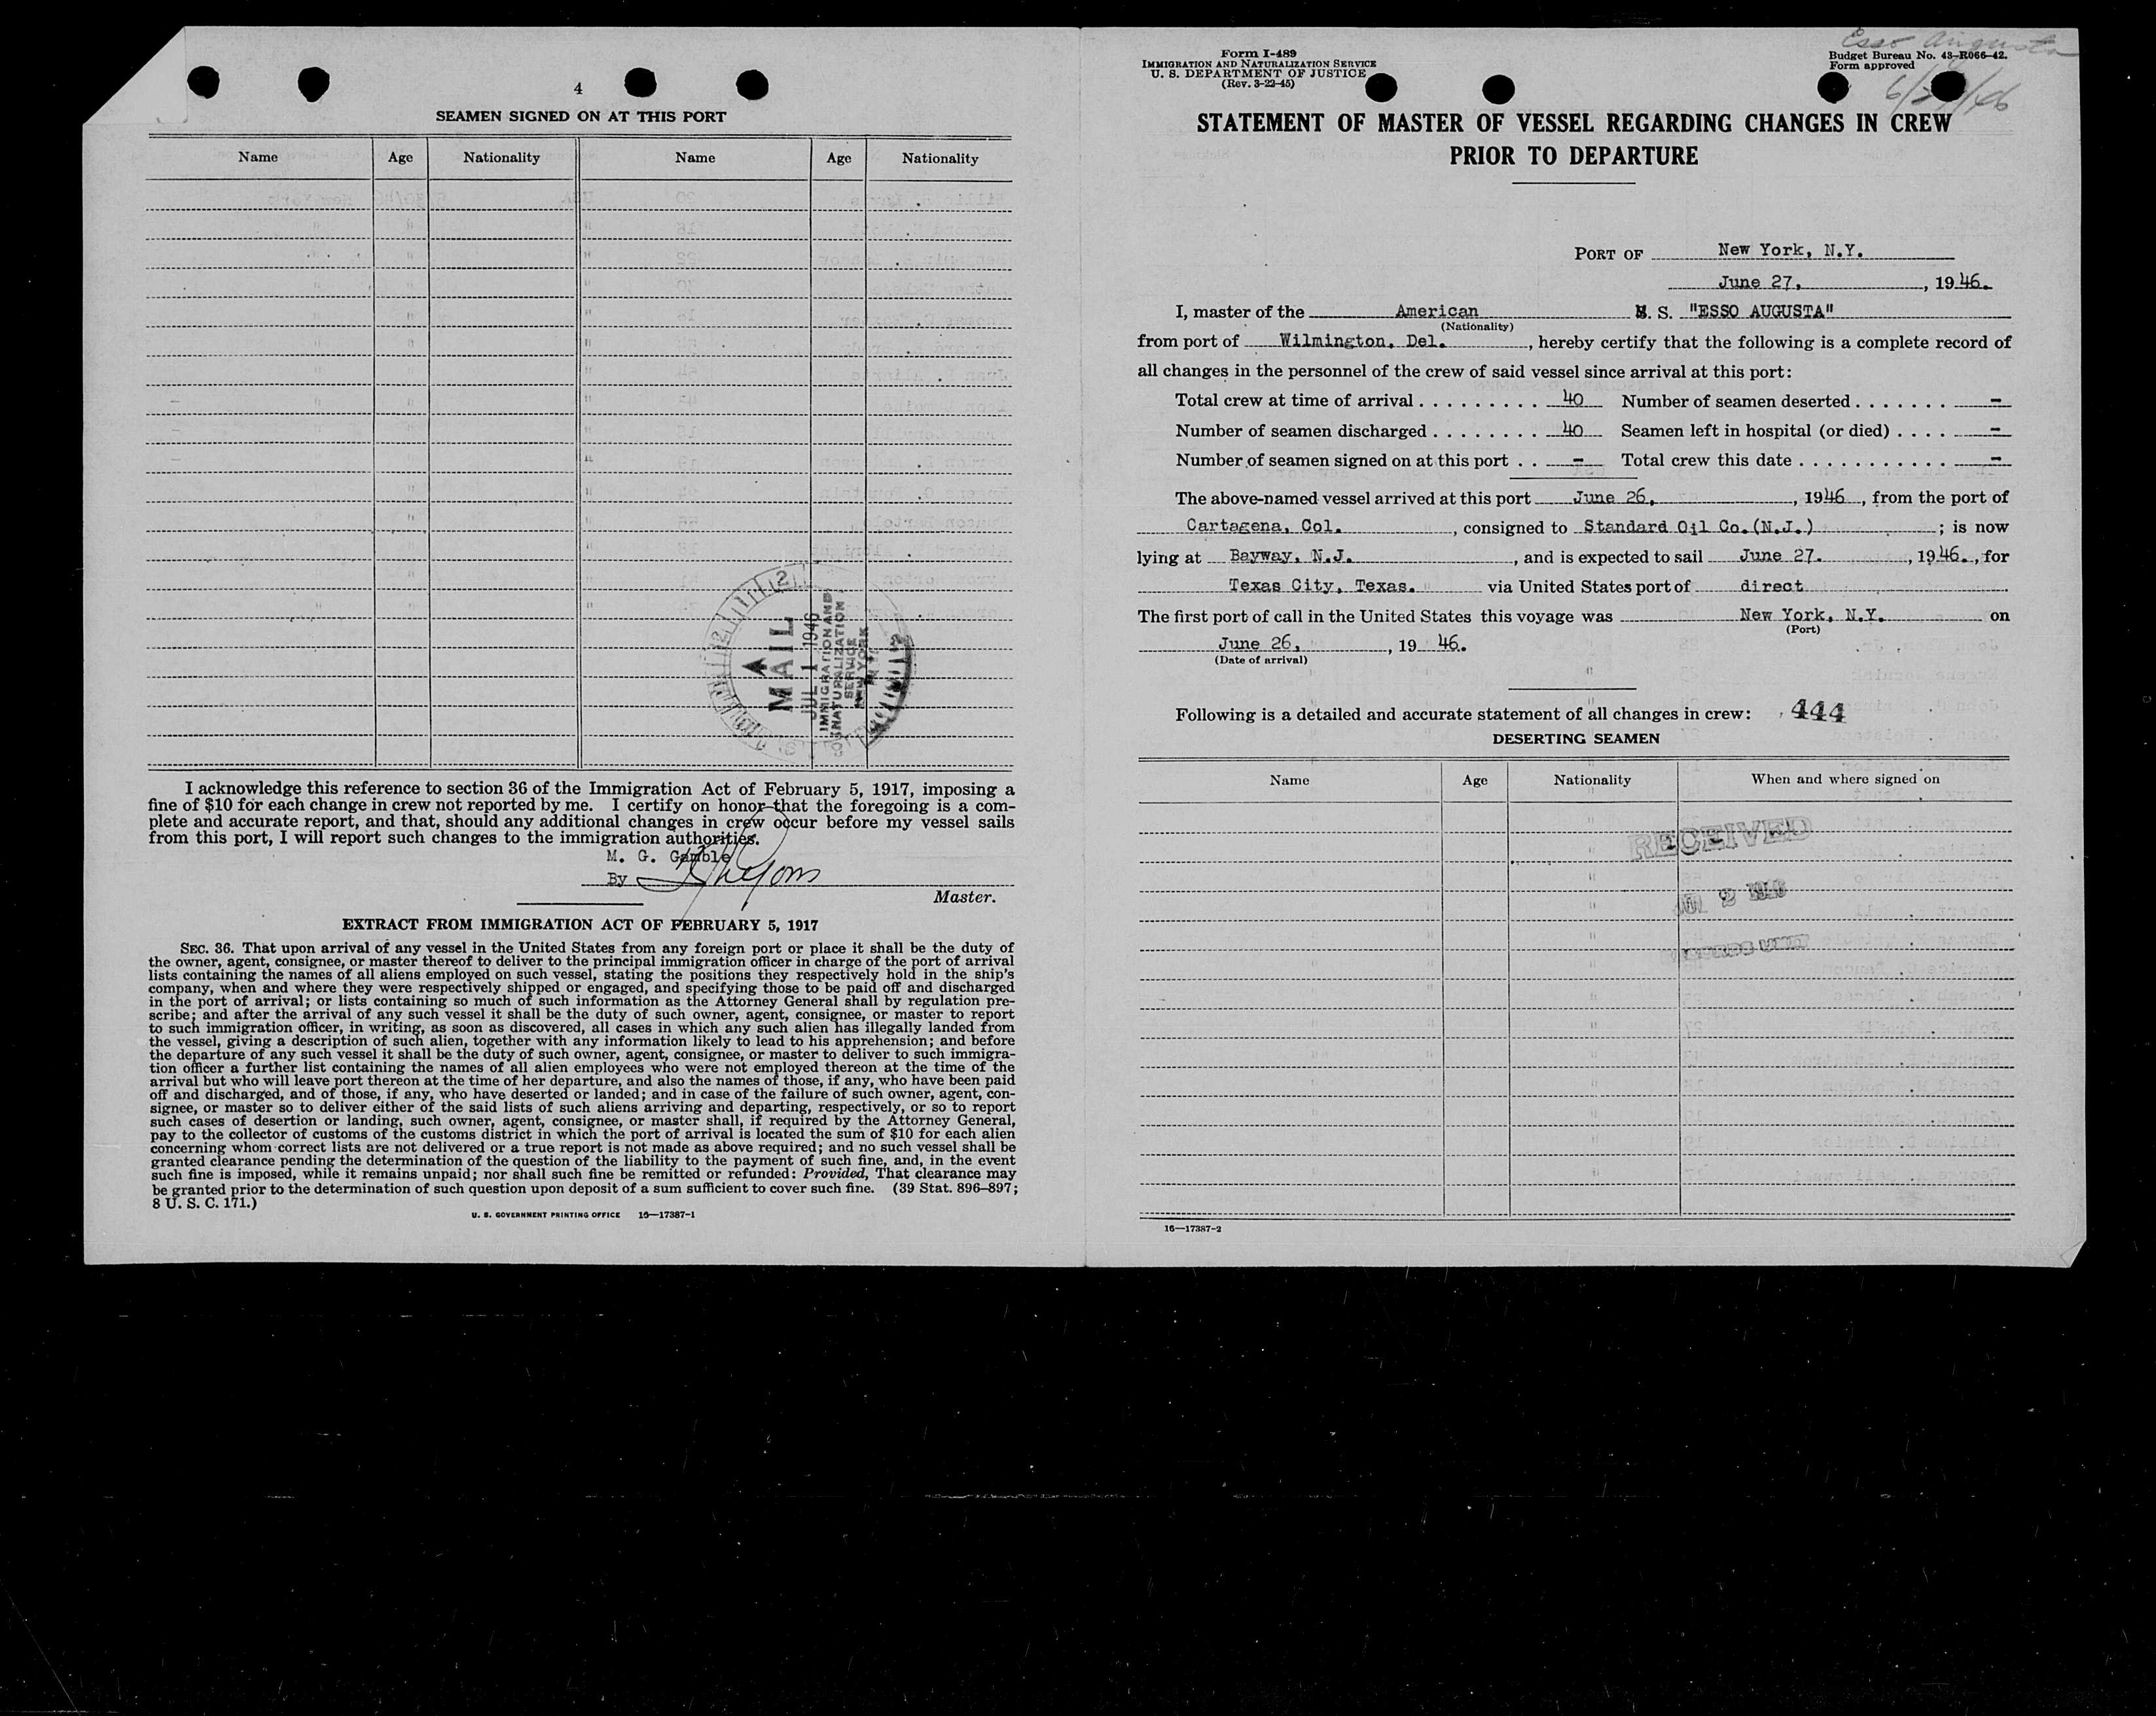 4
SEAMEN SIGNED ON AT THIS PORT
Name Age Nationality Name Age Nationality
MAIL
JUL 1 1946
IMMIGRATION AND
NATURALIZATION
SERVICE
NEW YORK
I acknowledge this reference to section 36 of the Immigration Act of February 5, 1917, imposing a
fine of $10 for each change in crew not reported by me. I certify on honor that the foregoing is a com-
plete and accurate report, and that, should any additional changes in crew occur before my vessel sails
from this port, I will report such changes to the immigration authorities.
M. G. Gamble
By
Master.
EXTRACT FROM IMMIGRATION ACT OF FEBRUARY 5, 1917
SEC. 36. That upon arrival of any vessel in the United States from any foreign port or place it shall be the duty of
the owner, agent, consignee, or master thereof to deliver to the principal immigration officer in charge of the port of arrival
lists containing the names of all aliens employed on such vessel, stating the positions they respectively hold in the ship's
company, when and where they were respectively shipped or engaged, and specifying those to be paid off and discharged
in the port of arrival; or lists containing so much of such information as the Attorney General shall by regulation pre-
scribe; and after the arrival of any such vessel it shall be the duty of such owner, agent, consignee, or master to report
to such immigration officer, in writing, as soon as discovered, all cases in which any such alien has illegally landed from
the vessel, giving a description of such alien, together with any information likely to lead to his apprehension; and before
the departure of any such vessel it shall be the duty of such owner, agent, consignee, or master to deliver to such immigra-
tion officer a further list containing the names of all alien employees who were not employed thereon at the time of the
arrival but who will leave port thereon at the time of her departure, and also the names of those, if any, who have been paid
off and discharged, and of those, if any, who have deserted or landed; and in case of the failure of such owner, agent, con-
signee, or master so to deliver either of the said lists of such aliens arriving and departing, respectively, or so to report
such cases of desertion or landing, such owner, agent, consignee, or master shall, if required by the Attorney General,
pay to the collector of customs of the customs district in which the port of arrival is located the sum of $10 for each alien
concerning whom correct lists are not delivered or a true report is not made as above required; and no such vessel shall be
granted clearance pending the determination of the question of the liability to the payment of such fine, and, in the event
such fine is imposed, while it remains unpaid; nor shall such fine be remitted or refunded: Provided, That clearance may
be granted prior to the determination of such question upon deposit of a sum sufficient to cover such fine. (39 Stat. 896–897;
8 U. S. C. 171.)
U. S. GOVERNMENT PRINTING OFFICE 16—17387-1
Esso Augusta
Form I-489
IMMIGRATION AND NATURALIZATION SERVICE
U. S. DEPARTMENT OF JUSTICE
(Rev. 3-22-45)
Budget Bureau No. 43-R066-42.
Form approved
STATEMENT OF MASTER OF VESSEL REGARDING CHANGES IN CREW
PRIOR TO DEPARTURE
PORT OF New York, N.Y.
June 27, , 1946.
I, master of the American M. S. "ESSO AUGUSTA"
(Nationality)
from port of Wilmington, Del. , hereby certify that the following is a complete record of
all changes in the personnel of the crew of said vessel since arrival at this port:
Total crew at time of arrival . . . . . . . . . . 40 Number of seamen deserted . . . . . . . –
Number of seamen discharged . . . . . . . . 40 Seamen left in hospital (or died) . . . . –
Number of seamen signed on at this port . . – Total crew this date . . . . . . . . . . . –
The above-named vessel arrived at this port June 26, , 1946 , from the port of
Cartagena, Col. , consigned to Standard Oil Co.(N.J.) ; is now
lying at Bayway, N.J. , and is expected to sail June 27. , 1946. , for
Texas City, Texas. via United States port of direct
The first port of call in the United States this voyage was New York, N.Y. on
(Port)
June 26, , 19 46.
(Date of arrival)
Following is a detailed and accurate statement of all changes in crew: 444
DESERTING SEAMEN
Name Age Nationality When and where signed on
RECEIVED
2 1946
RECORDS UNIT
16—17387-2